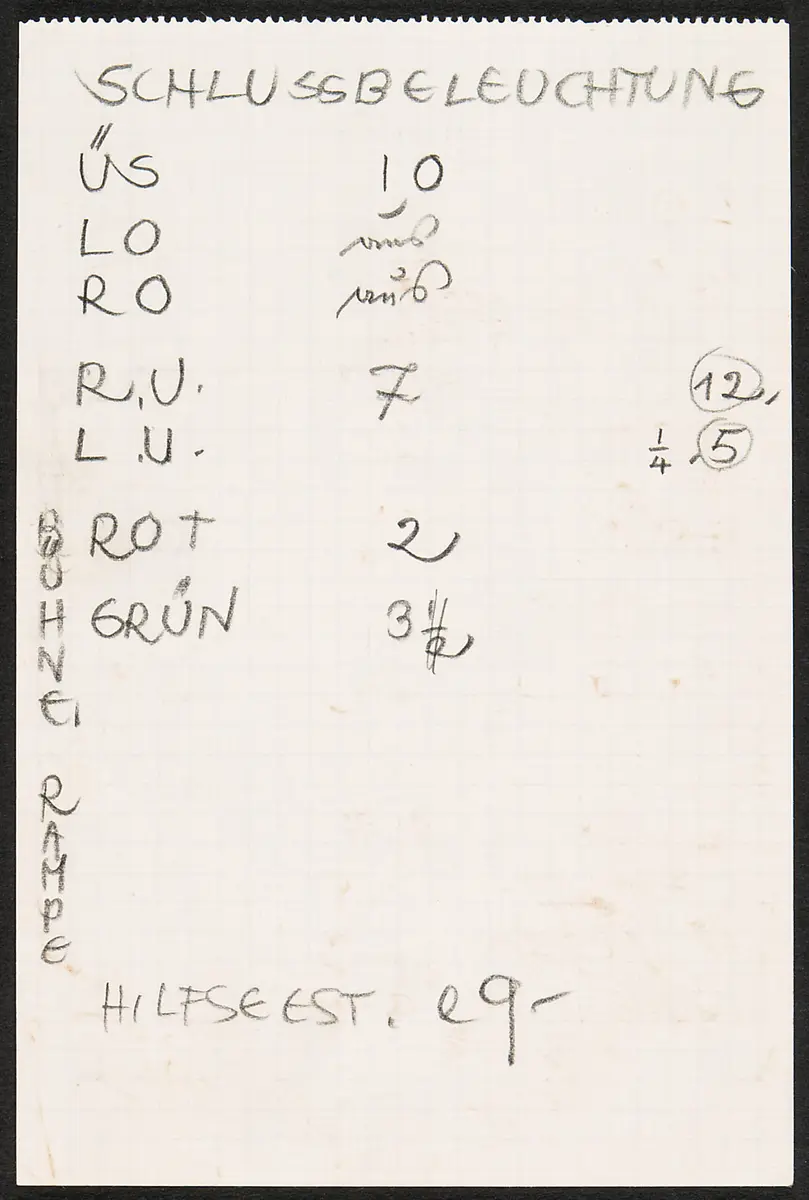 SCHLUSSBELEUCHTUNG
ÜS 10
LO aus
RO aus
R.U. 7 12.
L.U. 1/4 5
BÜHNE
ROT 2
GRÜN 3 1/2
RAMPE
HILFSEEST. e9-